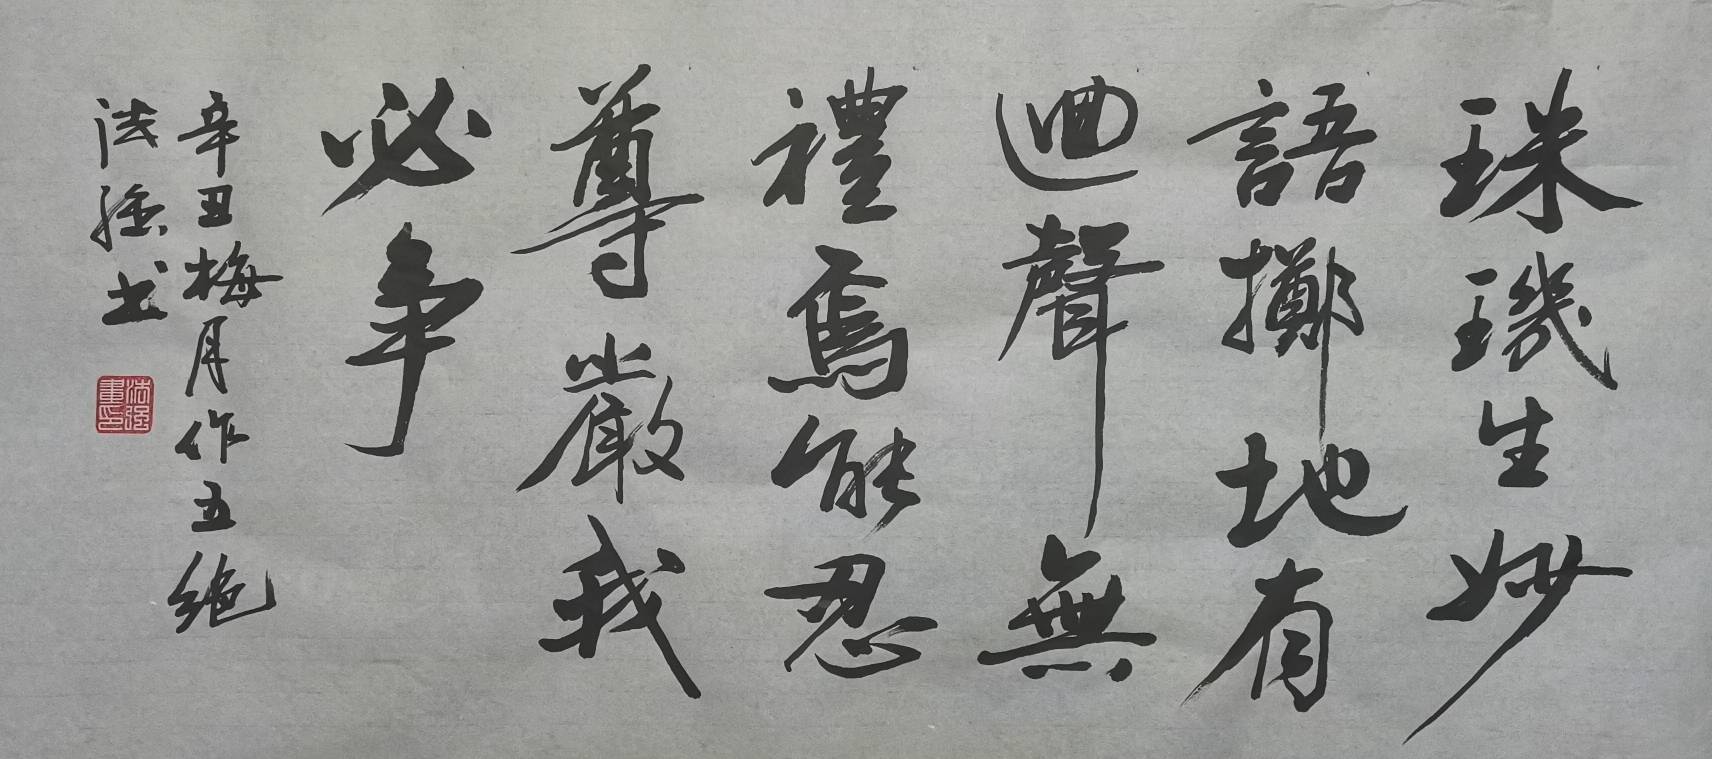 珠璣生妙
語擲地有
迴聲無
禮焉能忍
尊嚴我
必爭
辛丑梅月作五絕
法強書
法強書印